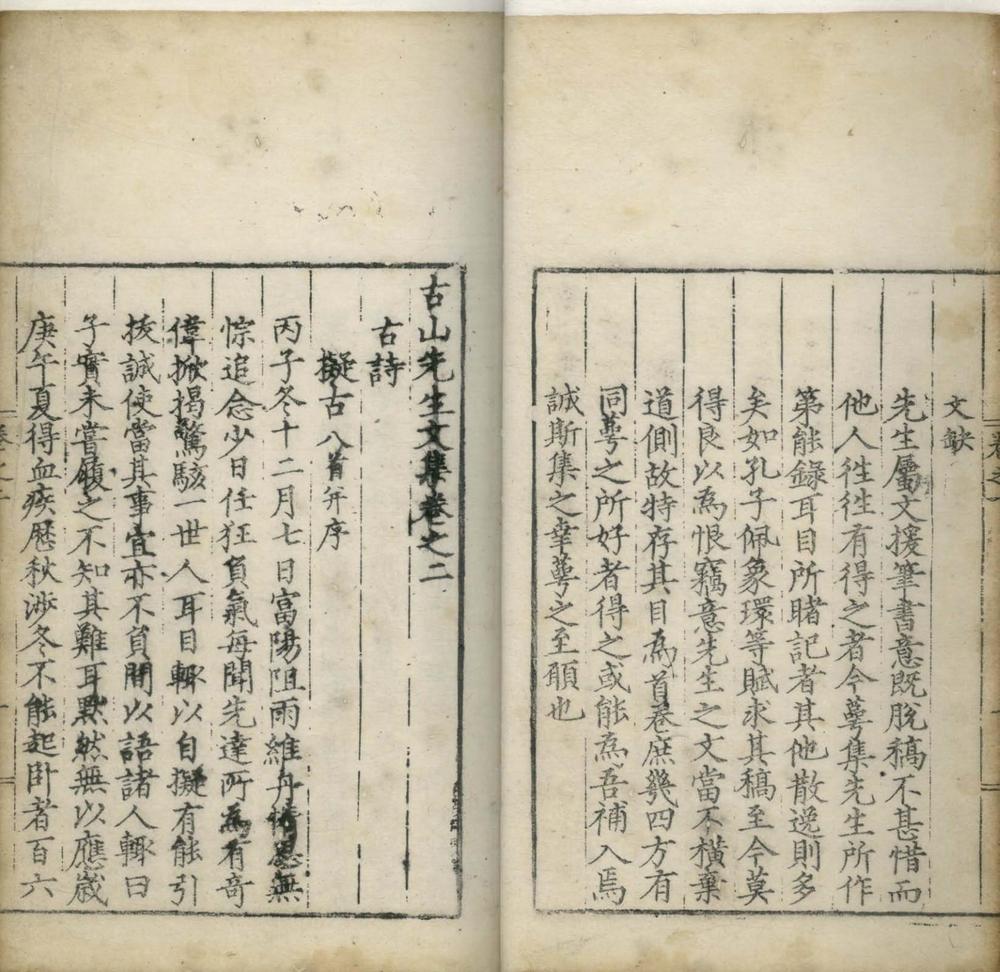 文缺
先生屬文援筆書意既脫稿不甚惜而
他人徃徃有得之者今蕚集先生所作
第能錄耳目所睹記者其他散逸則多
矣如孔子佩象環等賦求其稿至今莫
得良以為恨竊意先生之文當不橫棄
道側故特存其目為首卷庶幾四方有
同蕚之所好者得之或能為吾補入焉
誠斯集之幸蕚之至願也
古山先生文集卷之二
古詩
擬古八首并序
丙子冬十二月七日富陽阻雨維舟倦無
悰追念少日任狂負氣每聞先達所為有奇
偉掀揭驚駭一世人耳目輙以自擬有能引
拔誠使當其事宜亦不負間以語諸人輙曰
子實未嘗領之不知其難耳默然無以應歲
庚午夏得血疾歷秋涉冬不能起卧者百六